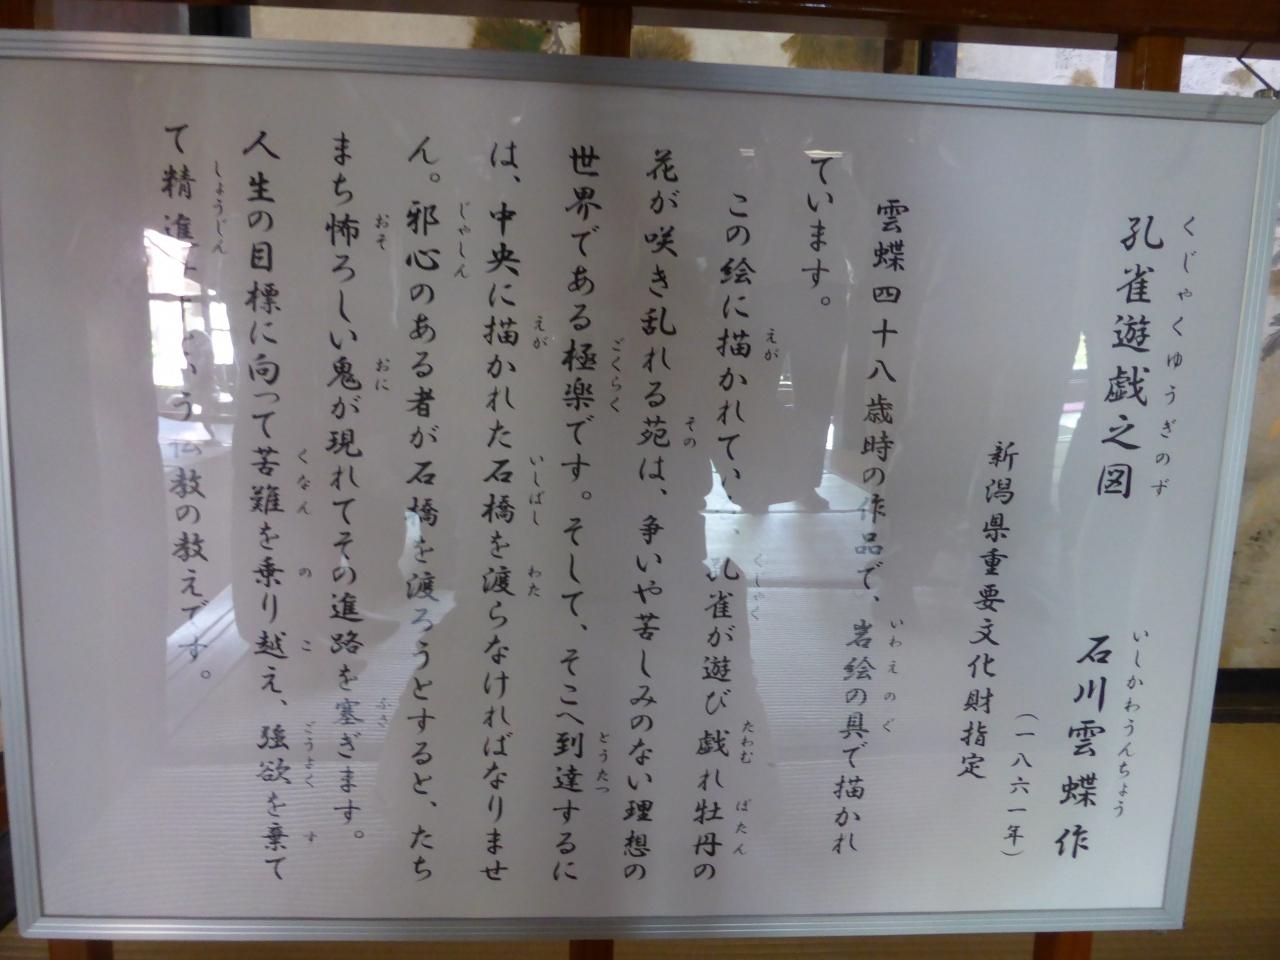 孔雀遊戯之図
くじゃくゆうぎのず
石川雲蝶 作
いしかわうんちょう
(一八六一年)
新潟県重要文化財指定
雲蝶四十八歳時の作品で、岩絵の具で描かれ
いわえのぐ
ています。
この絵に描かれてい、孔雀が遊び戯れ牡丹の
えが くじゃく たわむ ぼたん
花が咲き乱れる苑は、争いや苦しみのない理想の
その
世界である極楽です。そして、そこへ到達するに
ごくらく とうたつ
は、中央に描かれた石橋を渡らなければなりませ
えが いしばし わた
ん。邪心のある者が石橋を渡ろうとすると、たち
じゃしん
まち怖ろしい鬼が現れてその進路を塞ぎます。
おそ おに ふさ
人生の目標に向って苦難を乗り越え、強欲を棄て
くなん の こ ごうよく す
て精進 う仏教の教えです。
しょうじん